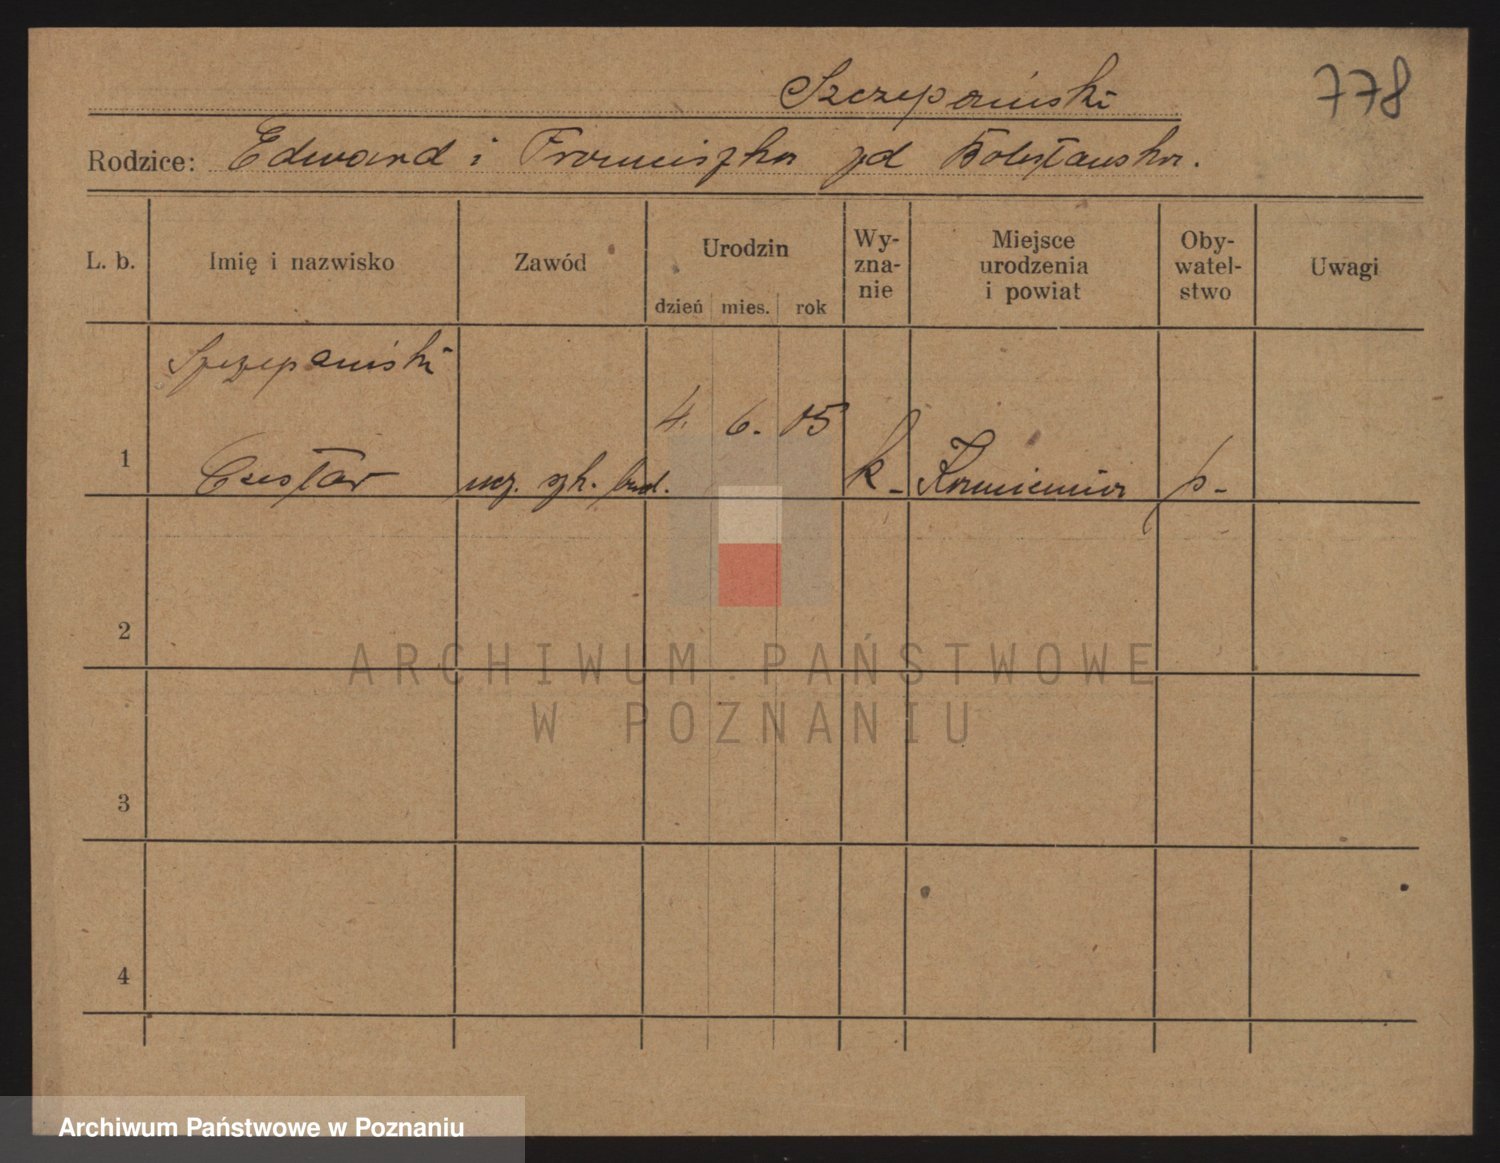 Szczepański
778
Rodzice: Edward i Franciszka zd
L. b.
Imię i nazwisko
Zawód
Urodzin
dzień mies. rok
Wy-
zna-
nie
Miejsce
urodzenia
i powiat
Oby-
watel-
stwo
Uwagi
Szczepański
1
Czesław
ucz. szk. bud.
4. 6. 05
k.
p.
2
3
4
ARCHIWUM PAŃSTWOWE
W POZNANIU
Archiwum Państwowe w Poznaniu